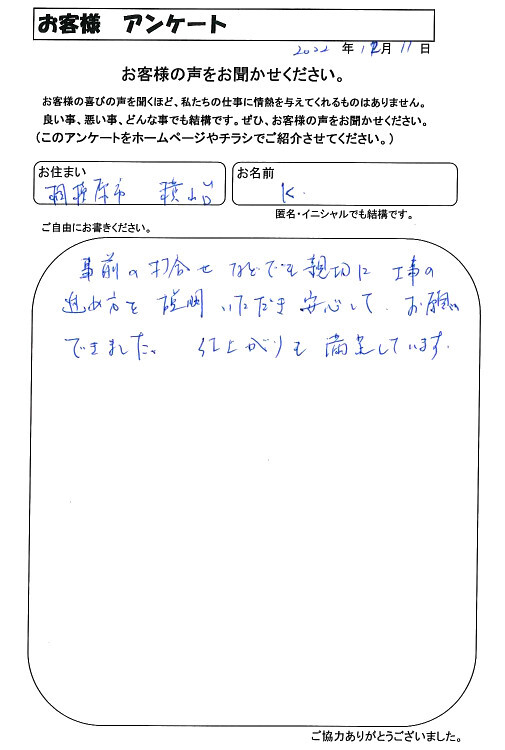 お客様 アンケート
2022 年 12月 11 日
お客様の声をお聞かせください。
お客様の喜びの声を聞くほど、私たちの仕事に情熱を与えてくれるものはありません。
良い事、悪い事、どんな事でも結構です。ぜひ、お客様の声をお聞かせください。
(このアンケートをホームページやチラシでご紹介させてください。)
お住まい
市
お名前
K.
匿名・イニシャルでも結構です。
ご自由にお書きください。
事前の打合せなどでも親切に 工事の
進め方を 説明 いただき 安心して、お願い
できました。 仕上がりも 満足しています。
ご協力ありがとうございました。